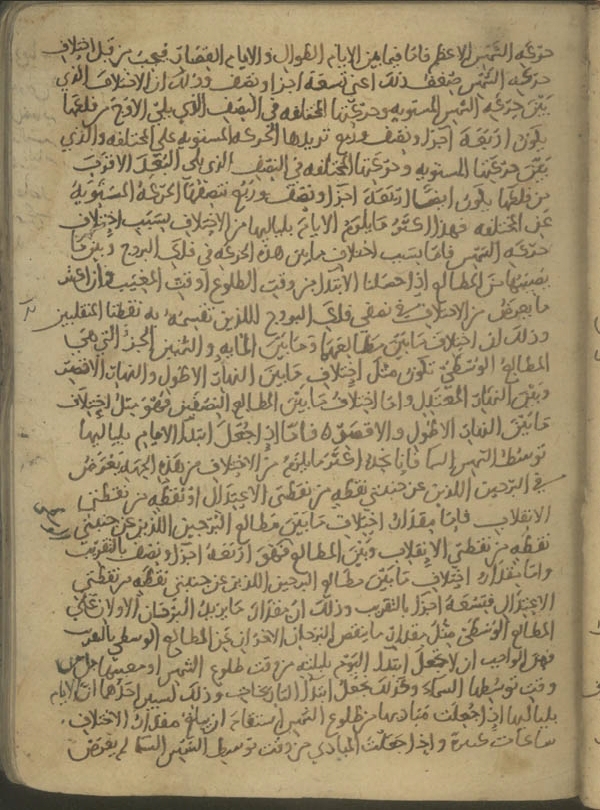 حركة الشمس الاعظم فاما فيما بين الايام الطوال والايام القصار فيجب من قبل اختلاف
حركة الشمس ضعف ذلك اعنى تسعة اجزا ونصف وذلك ان الاختلاف الذي
بين حركة الشمس المستويه وحركتها المختلفه في النصف الذي يلي الاوج من فلكها
يكون اربعة اجزا ونصف وربع تزيدها الحركه المستويه على المختلفه والذي
بين حركتها المستويه وحركتها المختلفه في النصف الذي يلي البعد الاقرب
من فلكها يكون ايضا اربعة اجزا ونصف وربع تنقصها الحركه المستويه
عن المختلفه فهذا اكثر ما يلزم الايام بلياليها من الاختلاف بسبب اختلاف
حركة الشمس فاما بسبب اختلاف ما بين هذه الحركه في فلك البروج وبين ما
يصيبها من المطالع اذا جعلنا الابتدا من وقت الطلوع او وقت المغيب فان اكثر
ما يعرض من الاختلاف في نصفي فلك البروج اللذين تقسمه به نقطتا المنقلبين
وذلك ان اختلاف ما بين مطالعهما وما بين المايه والثمنين الجزء التي هي
المطالع الوسطى تكون مثل اختلاف ما بين النهار الاطول والنهار الاقصر
وبين النهار المعتدل واما اختلاف ما بين المطالع النصفين فهو مثل اختلاف
ما بين النهار الاطول والاقصر فاما اذا جعل ابتدا الايام بلياليها
توسط الشمس السما فانا نجد اكثر ما يلزم من الاختلاف من هذه الجهه يعرض
في البرجين اللذين عن جنبتي نقطه من نقطتي الاعتدال او نقطه من نقطتي
الانقلاب فاما مقدار اختلاف ما بين مطالع البرجين اللذين عن جنبتي
نقطه من نقطتي الانقلاب وبين المطالع فهو اربعة اجزا ونصف بالتقريب
واما مقدار اختلاف ما بين مطالع البرجين اللذين عن جنبتي نقطه من نقطتي
الاعتدال فتسعة اجزا بالتقريب وذلك ان مقدار ما يزيد البرجان الاولان على
المطالع الوسطى مثل مقدار ما ينقص البرجان الاخران عن المطالع الوسطى بالتقريب
فهو الواجب ان لا نجعل ابتدا اليوم بليلته من وقت طلوع الشمس او مغيبها
وقت توسطها السماء وكذلك نجعل ابتدا وذلك لسببين احدهما ان الايام
بلياليها اذا جعلت مباديها من طلوع الشمس استقام ان يبلغ مقدار الاختلاف
ساعات كثيرة واذا جعلت المبادي من وقت توسط الشمس السما لم يعرض